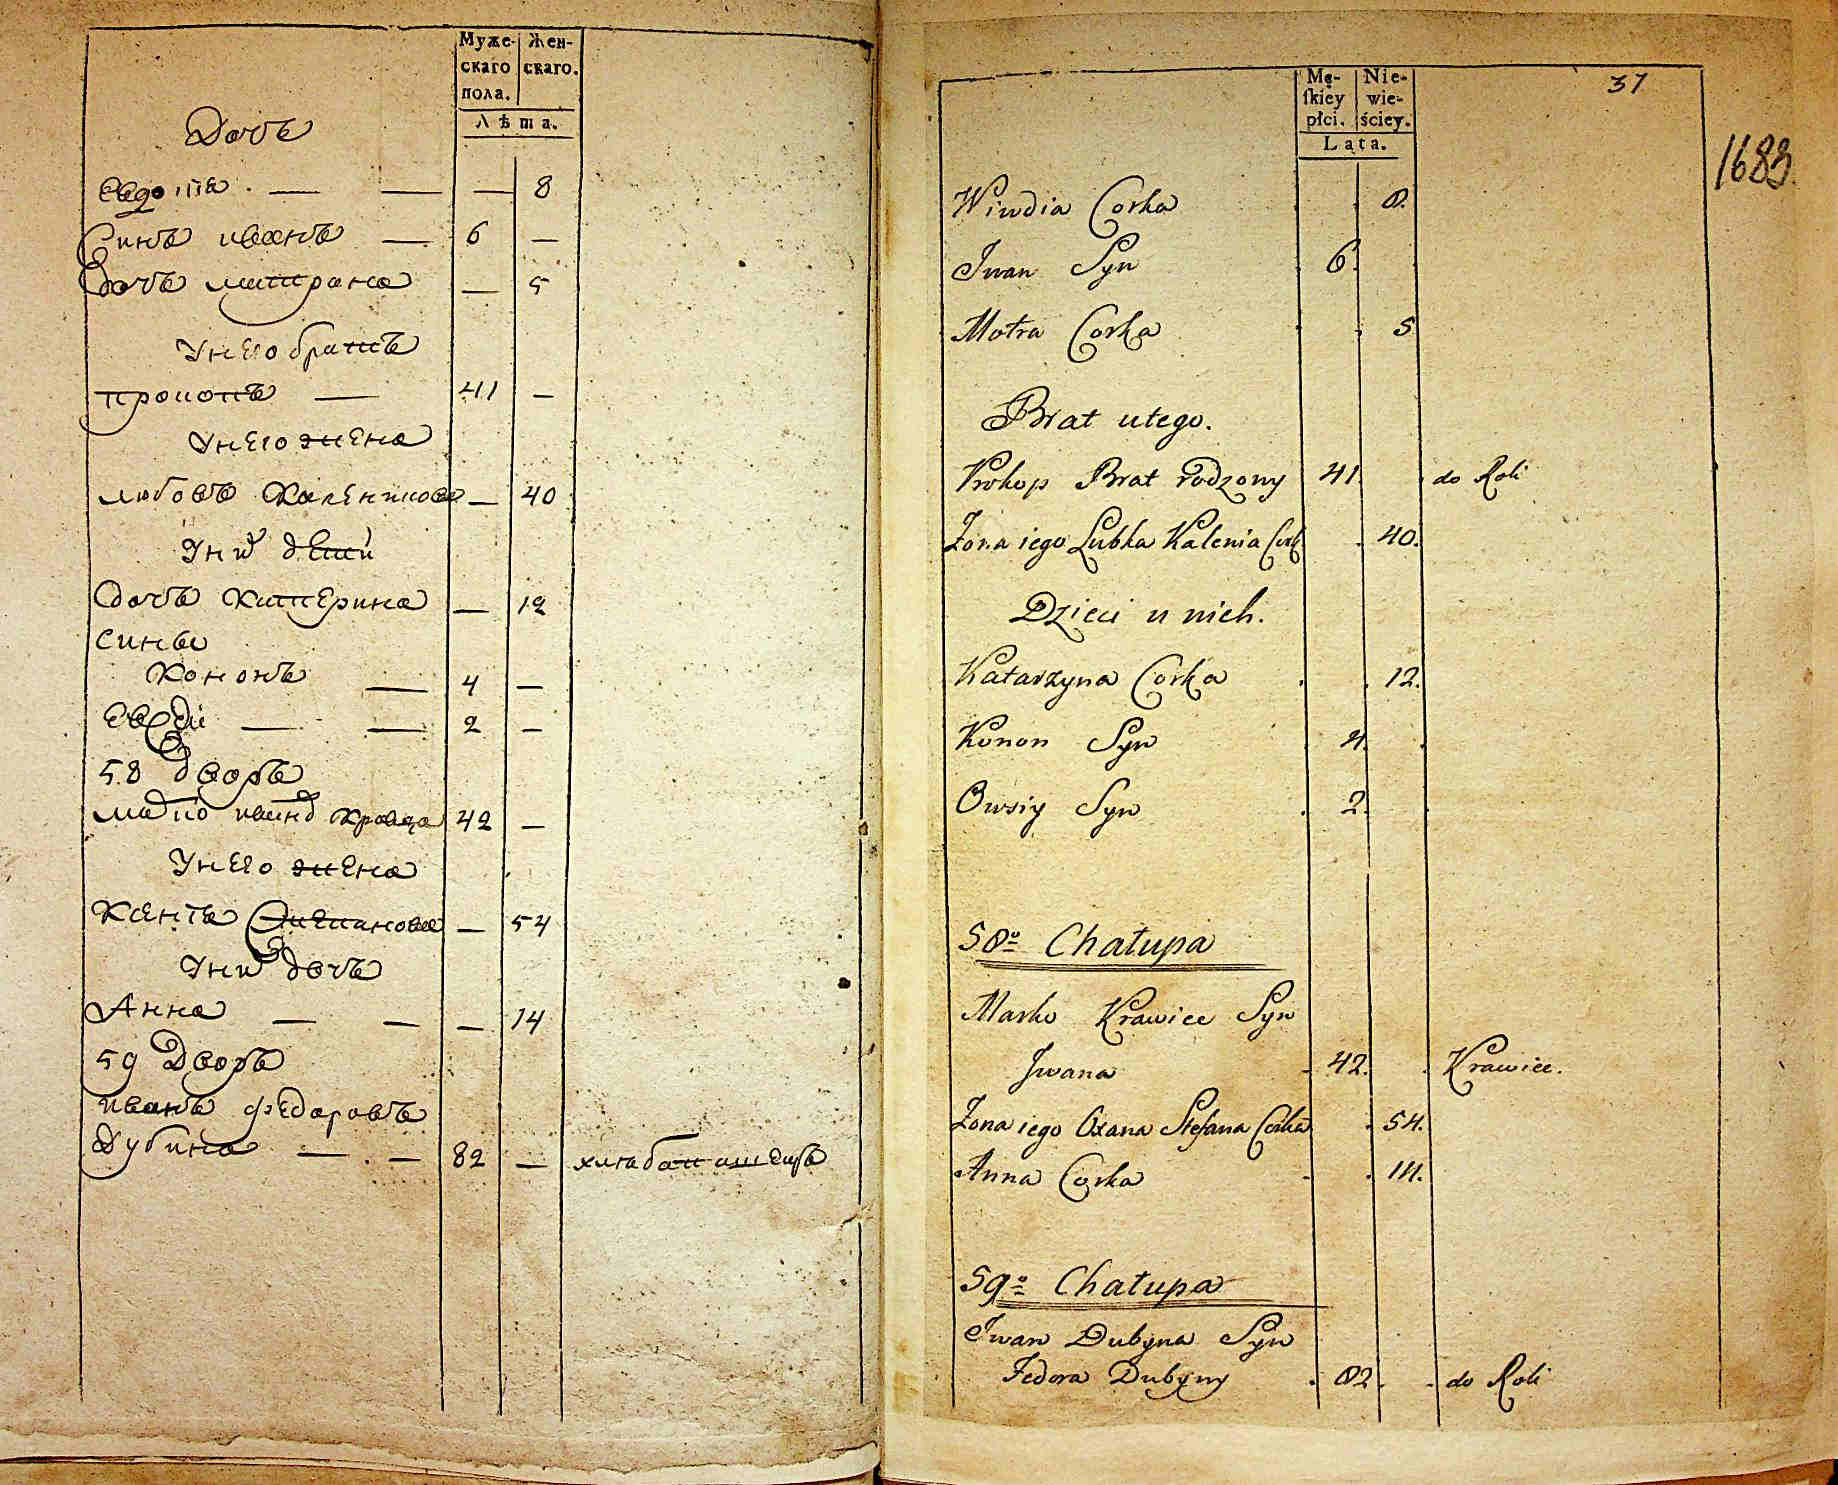 Муже-
скаго
пола.
Жен-
скаго.
Лѣта.
Дочь
Евдокія 8
Синъ иванъ 6
Дочь матрона 5
У него братъ
прокопъ 41
У него жена
любовь Каленикова 40
У них дѣти
дочь Катерина 12
сины
Кононъ 4
Евсѣй 2
58 дворъ
иванъ Кравецъ 42
У него жена
Ксенія Степанова 54
У них дочь
Анна 14
59 Дворъ
иванъ федоровъ
Дубина 82 хлѣбопашецъ
Mę-
ſkiey
płci.
Nie-
wie-
ściey.
Lata.
37
1683.
Wiwdia Corka 8.
Jwan Syn 6.
Motra Corka 5
Brat utego.
Prokop Brat rodzony 41. do Roli
Żona iego Lubka Kalenia Cork 40.
Dzieci u nich.
Katarzyna Corka 12.
Konon Syn 4.
Owsiy Syn 2.
58º Chałupa
Marko Krawiec Syn
Jwana 42. Krawiec.
Żona iego Oxana Stefana Corka 54.
Anna Corka 14.
59º Chałupa
Jwan Dubyna Syn
Fedora Dubyny 82. do Roli